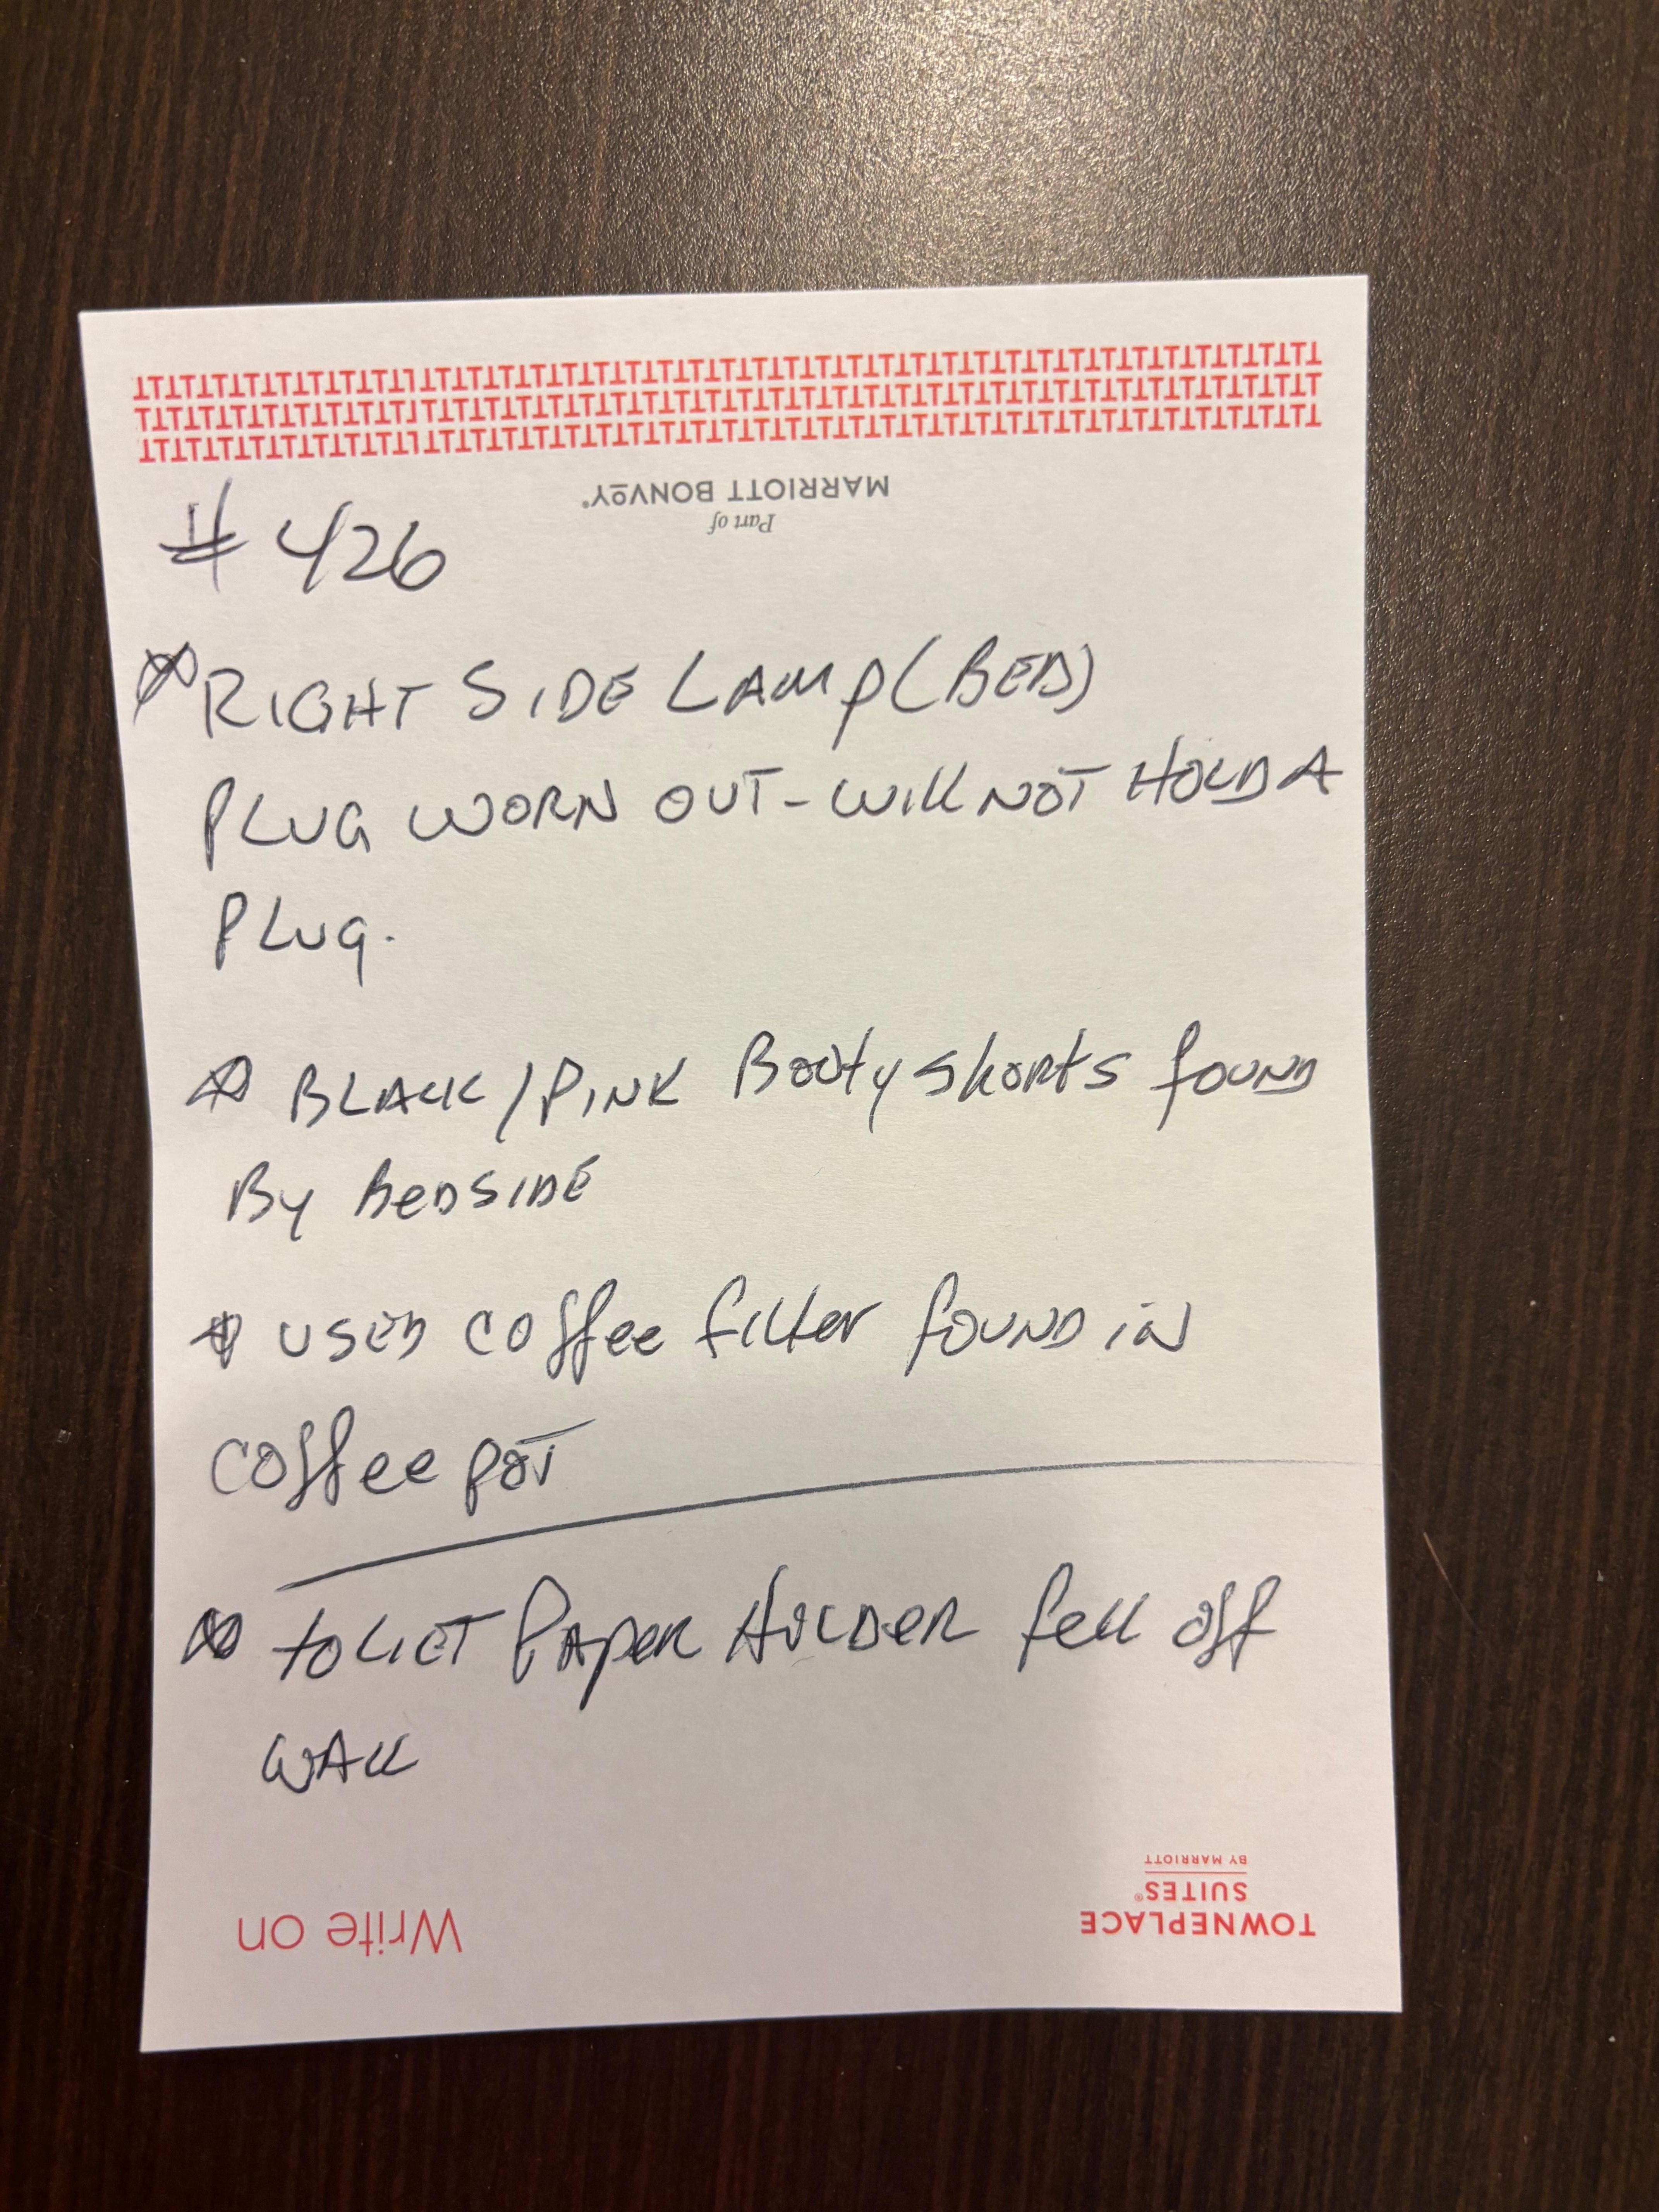 MARRIOTT BONVOY
Part of
# 426
RIGHT SIDE LAMP (BED)
PLUG WORN OUT - WILL NOT HOLD A
PLUG.
BLACK/PINK Booty shorts found
By BEDSIDE
USED coffee filter found in
coffee pot
toLIET PAPER HOLDER fell off
WALL
BY MARRIOTT
SUITES®
TOWNEPLACE
Write on